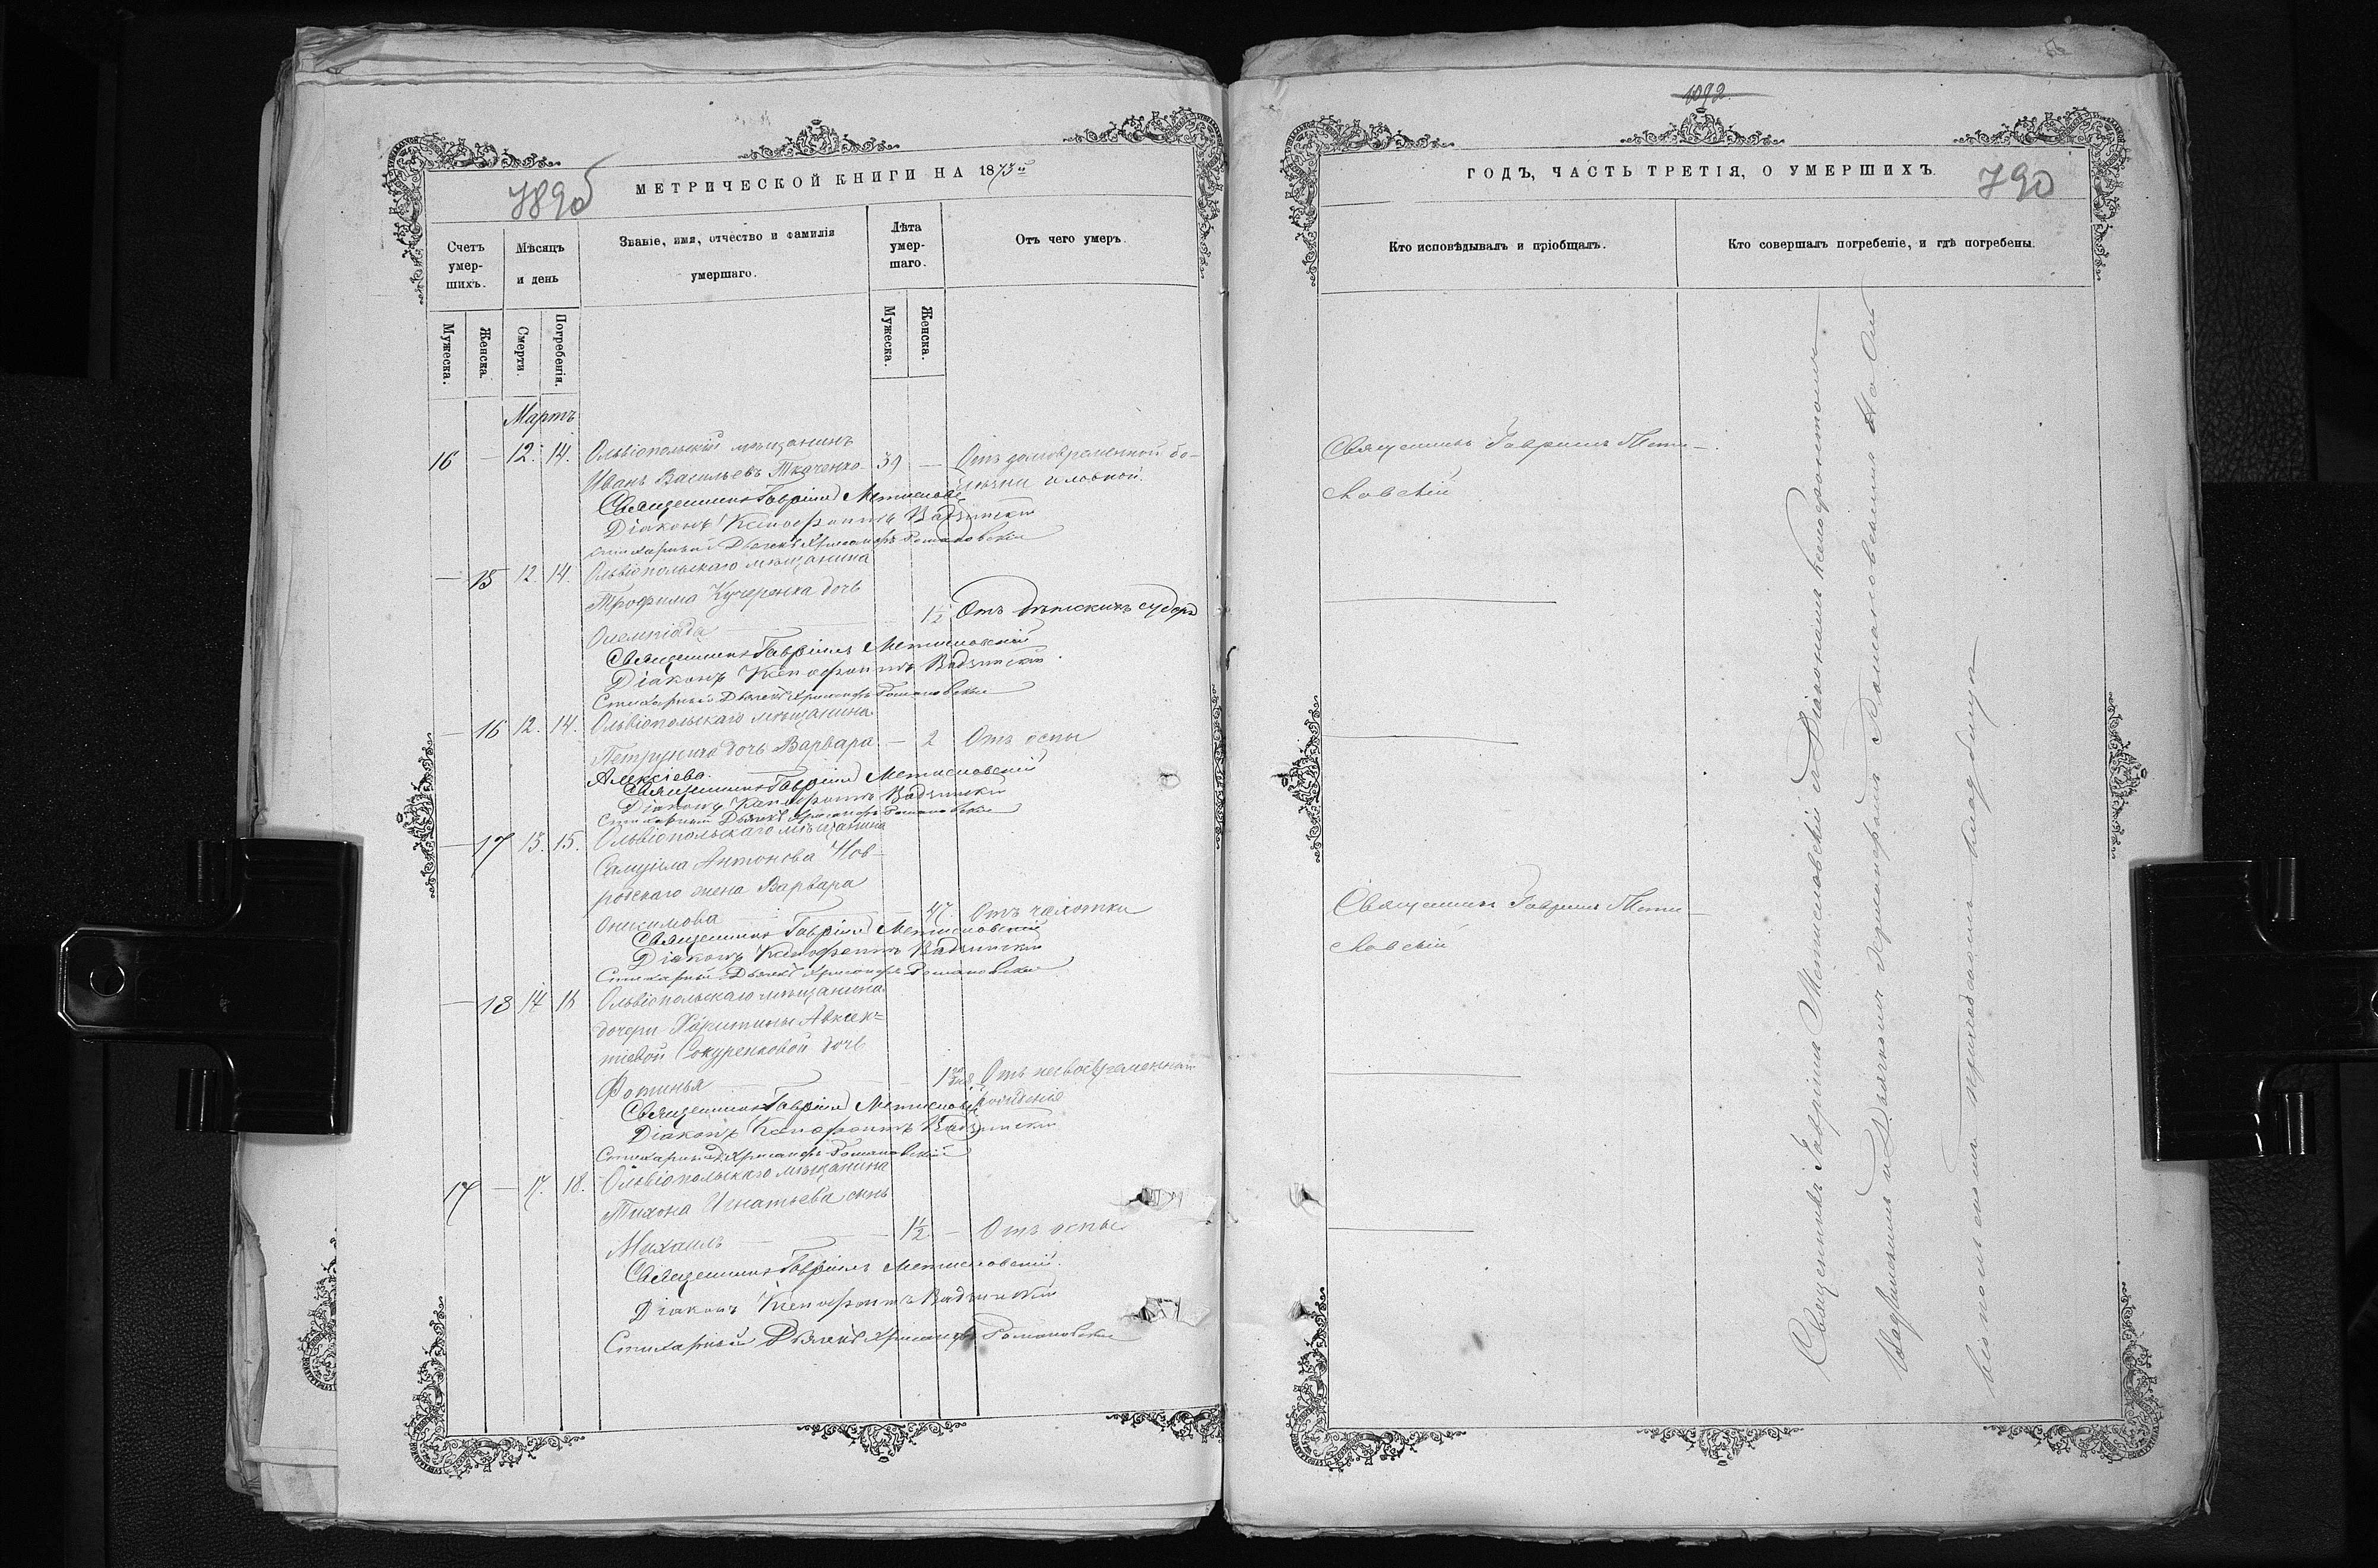 789об
МЕТРИЧЕСКОЙ КНИГИ НА 1873й
Счетъ умер-шихъ.
Мѣсяцъ и день
Званіе, имя, отчество и фамилія умершаго.
Лѣта умер-шаго.
Отъ чего умеръ.
Мужеска.
Женска.
Смерти.
Погребенія.
Мужеска.
Женска.
Мартъ
16 — 12. 14. Ольвіопольскій мѣщанинъ
Иванъ Васильевъ Ткаченко 39 — Отъ долговременной бо-
Священникъ Гавріилъ Метисловс
Діаконъ Ксенофонтъ Вадзинскій
Стихарный Дьячекъ Хрисанфъ Романовскій
— 15 12. 14. Ольвіопольскаго мѣщанина
Трофима Кучеренка дочь
Олемпіада — 1½ Отъ дѣтскихъ судоръ
Священникъ Гавріилъ Метисловскій
Діаконъ Ксенофонтъ Вадзинскій
Стихарный Дьячекъ Хрисанфъ Романовскій
— 16 12. 14. Ольвіопольскаго мѣщанина
Петрунича дочь Варвара — 2 Отъ оспы
Алексіева.
Священникъ Гавріилъ Метисловскій
Діаконъ Ксенофонтъ Вадзинскій
Стихарный Дьячекъ Хрисанфъ Романовскій
— 17 13. 15. Ольвіопольскаго мѣщанина
Самуила Антонова Нов-
родскаго жена Варвара
Онисимова — 47. Отъ чахотки
Священникъ Гавріилъ Метисловскій
Діаконъ Ксенофонтъ Вадзинскій
Стихарный Дьячекъ Хрисанфъ Романовскій
— 18 14 16 Ольвіопольскаго мѣщанина
дочери Харитины Авксен=
тіевой Сокуренковой дочь
Фотинья — 1го дня Отъ несвоевременнаго
рожденія
Священникъ Гавріилъ Метисловскі
Діаконъ Ксенофонтъ Вадзинскій
Стихарный Хрисанфъ Романовскій
17 — 17. 18. Ольвіопольскаго мѣщанина
Тихона Игнатьева сынъ
Михаилъ — 1½ — Отъ оспы
Священникъ Гавріилъ Метисловскій.
Діаконъ Ксенофонтъ Вадзинскій
Стихарный Дьячекъ Хрисанфъ Романовскій
1092.
ГОДЪ, ЧАСТЬ ТРЕТІЯ, О УМЕРШИХЪ.
790
Кто исповѣдывалъ и пріобщалъ.
Кто совершалъ погребеніе, и гдѣ погребены.
Священникъ Гавріилъ Мети-
словскій
Священникъ Гавріилъ Мети-
словскій
Священникъ Гавріилъ Метисловскій съ Діакономъ Ксенофонтомъ
Вадзинскимъ и Дьячкомъ Романовскимъ на Оль
віопольскомъ приходскомъ кладбищѣ